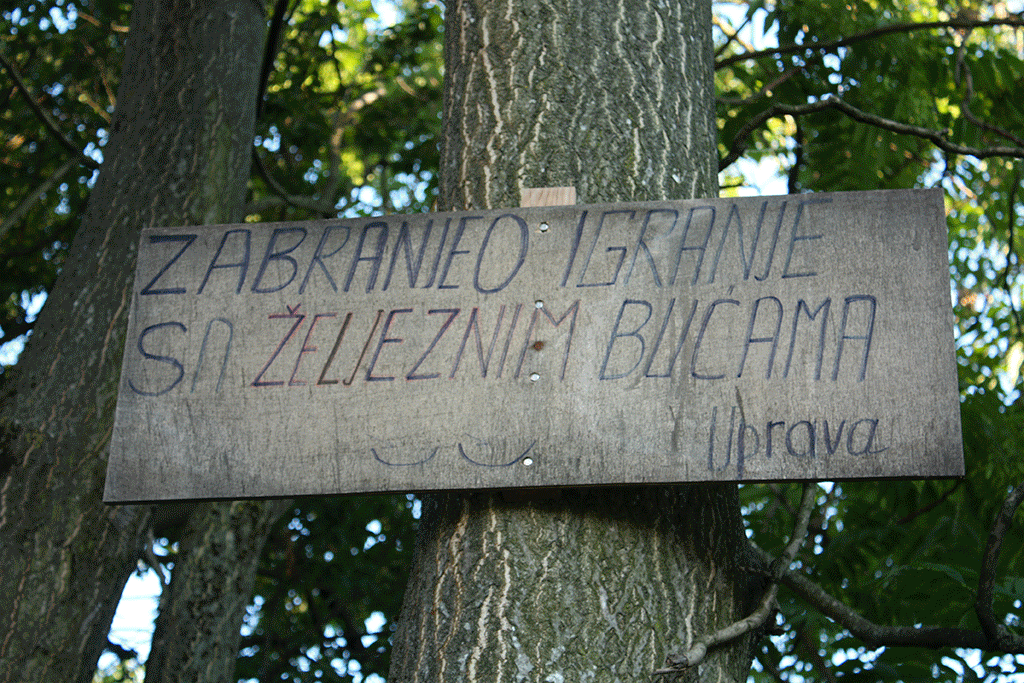 ZABRANJEO IGRANJE
SA ŽELJEZNIM BUĆAMA
Uprava